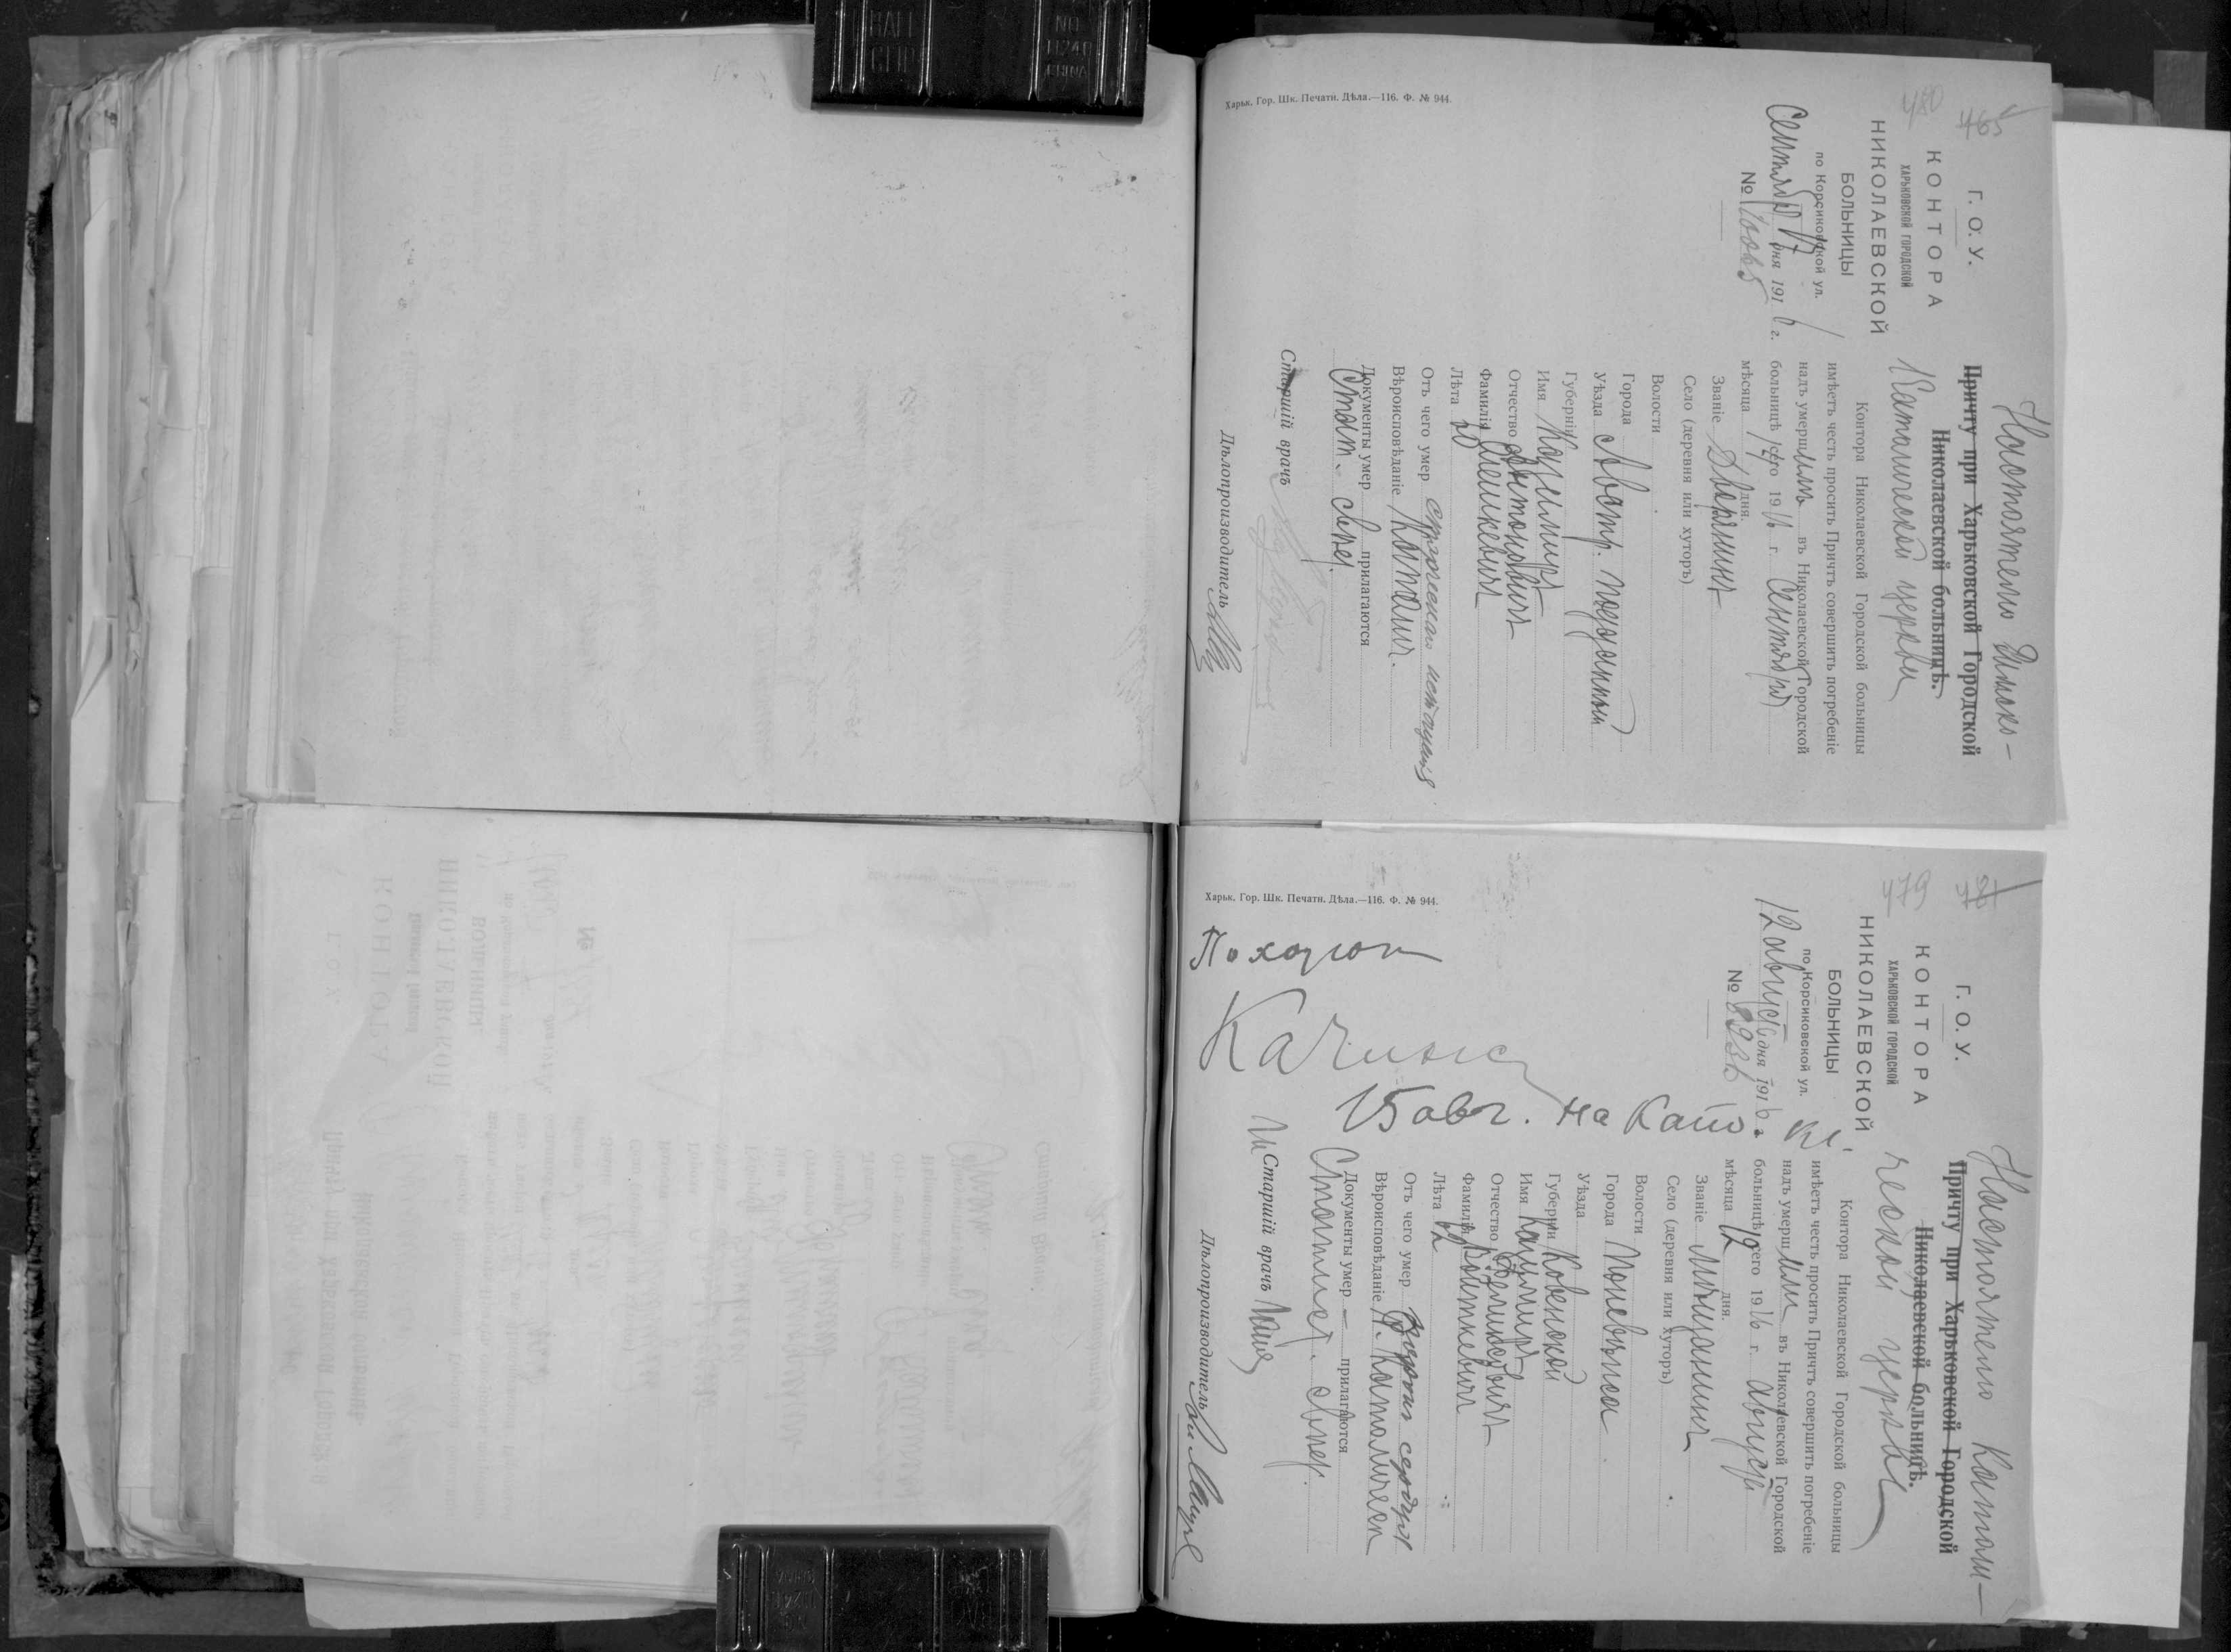 480
465
Г. О. У.
КОНТОРА
ХАРЬКОВСКОЙ ГОРОДСКОЙ
НИКОЛАЕВСКОЙ
БОЛЬНИЦЫ
по Корсиковской ул.
Сентября 17 дня 1916 г.
№
Настоятелю Римско-
Причту при Харьковской Городской
Николаевской больницѣ.
Католической церкви
Контора Николаевской Городской больницы
имѣетъ честь просить Причтъ совершить погребеніе
надъ умершимъ въ Николаевской Городской
больницѣ сего 1916 г. Сентября
мѣсяца 17 дня.
Званіе Дворянинъ
Село (деревня или хуторъ)
Волости
Города
Уѣзда Австр. подданный
Губерніи
Имя Казимиръ
Отчество Антоновичъ
Фамилія
Лѣта
Отъ чего умер
Вѣроисповѣданіе Католич.
Документы умер прилагаются
Стат. свѣд.
Старшій врачъ
Дѣлопроизводитель
Харьк. Гор. Шк. Печатн. Дѣла.—116. Ф. № 944.
479
Г. О. У.
КОНТОРА
ХАРЬКОВСКОЙ ГОРОДСКОЙ
НИКОЛАЕВСКОЙ
БОЛЬНИЦЫ
по Корсиковской ул.
12 августа дня 1916 г.
№ 8936
Настоятелю Католи-
Причту при Харьковской Городской
Николаевской больницѣ.
ческой церкви
Контора Николаевской Городской больницы
имѣетъ честь просить Причтъ совершить погребеніе
надъ умершимъ въ Николаевской Городской
больницѣ сего 1916 г. августа
мѣсяца 12 дня.
Званіе Мѣщанинъ
Село (деревня или хуторъ)
Волости
Города Поневѣжа
Уѣзда
Губерніи Ковенской
Имя Казимиръ
Отчество Феликсовичъ
Фамилія Войткевичъ
Лѣта
Отъ чего умер порокъ сердца
Вѣроисповѣданіе Р. Католическ
Документы умер — прилагаются
Статист. свѣд.
Старшій врачъ
Дѣлопроизводитель
15 авг. на Като. кл.
Харьк. Гор. Шк. Печатн. Дѣла.—116. Ф. № 944.